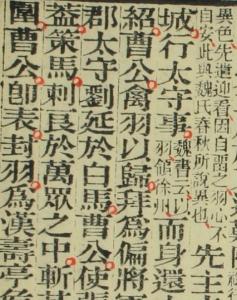 異色先遣迎看因自留之羽心不
自安此與魏氏春秋所說無異也
先主
城行太守事
魏書云以
羽領徐州
而身還
紹曹公禽羽以歸拜爲偏將
郡太守劉延於白馬曹公使張
蓋策馬刺良於萬眾之中斬其
圍曹公卽表封羽爲漢壽亭侯